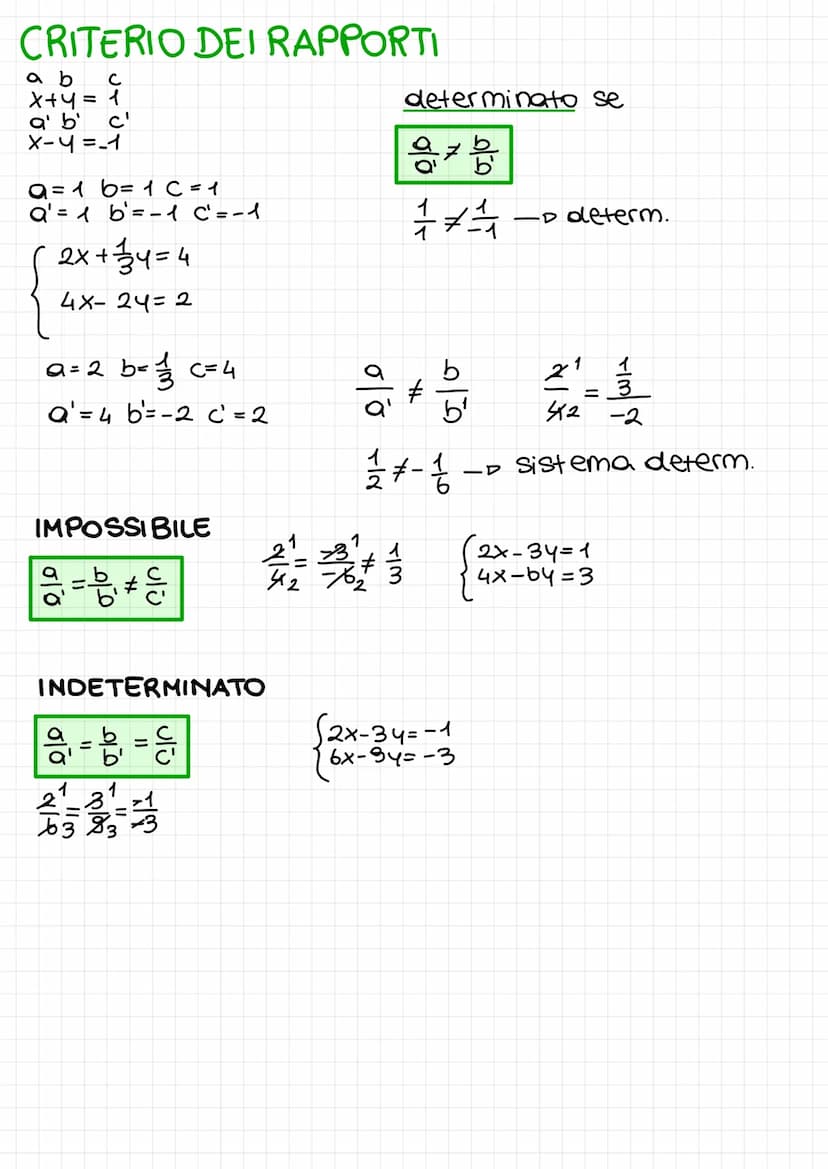 CRITERIO DEI RAPPORTI
a b c
x+y = 1
a' b' c'
x-y =-1
a=1 b=1 c=1
a'=1 b'=-1 c'=-1
determinato se
a/a' ≠ b/b'
1/1 ≠ 1/-1 → determ.
{ 2x+1/3y=4
4x-2y=2
a=2 b=1/3 c=4
a'=4 b'=-2 c'=2
a/a' ≠ b/b'
2¹/4₂ = 1/3/-2
1/2 ≠ -1/6 → sistema determ.
IMPOSSIBILE
a/a' = b/b' ≠ c/c'
2¹/4₂ = -3¹/-6₂ ≠ 1/3
{ 2x-3y=1
4x-6y=3
INDETERMINATO
a/a' = b/b' = c/c'
{ 2x-3y=-1
6x-9y=-3
2¹/6₃ = 3¹/9₃ = -1/-3